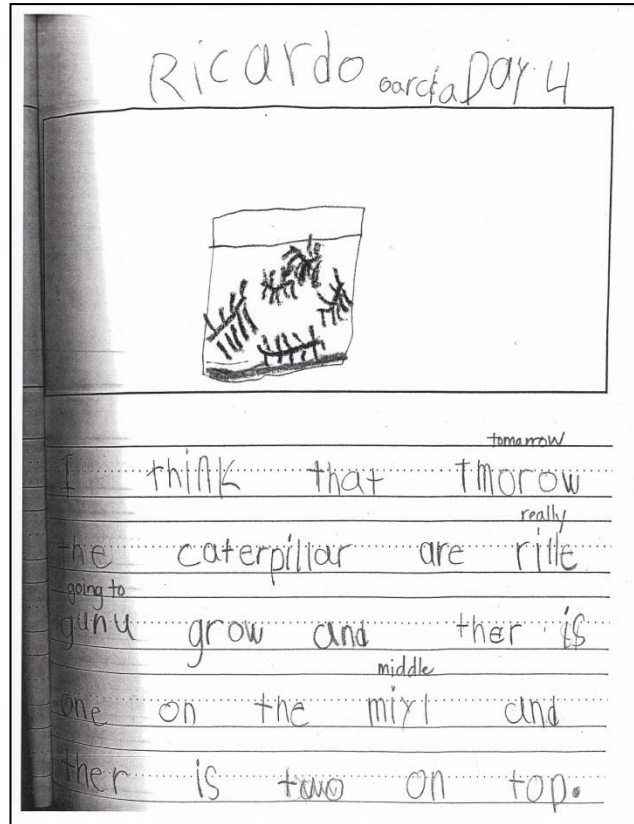 Ricardo Garcia Day 4
tomarrow
I think that tmorow
really
the caterpillar are rille
going to
gunu grow and ther is
middle
one on the miyl and
ther is two on top.